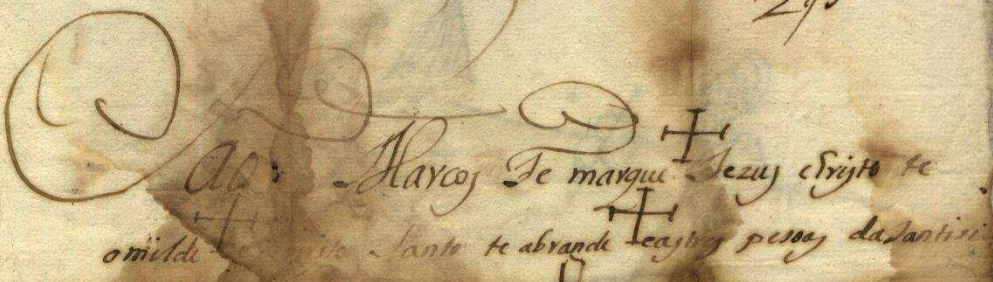 Marcos Te marque Jezus christo te
omilde Santo te abrande e as tres pesoas da Santisi